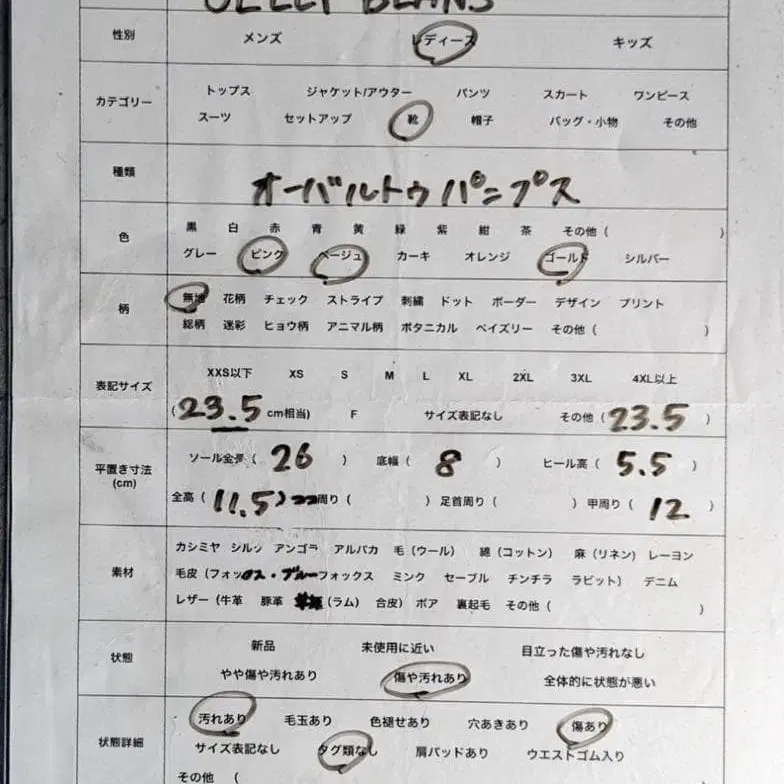 JELLY BEANS
性別 メンズ レディース キッズ
カテゴリー
トップス ジャケット/アウター パンツ スカート ワンピース
スーツ セットアップ 靴 帽子 バッグ・小物 その他
種類 オーバルトゥパンプス
色
黒 白 赤 青 黄 緑 紫 紺 茶 その他 ( )
グレー ピンク ベージュ カーキ オレンジ ゴールド シルバー
柄
無地 花柄 チェック ストライプ 刺繍 ドット ボーダー デザイン プリント
総柄 迷彩 ヒョウ柄 アニマル柄 ボタニカル ペイズリー その他 ( )
表記サイズ
XXS以下 XS S M L XL 2XL 3XL 4XL以上
(23.5 cm相当) F サイズ表記なし その他 (23.5 )
平置き寸法
(cm)
ソール全長 ( 26 ) 底幅 ( 8 ) ヒール高 ( 5.5 )
全高 ( 11.5) 周り ( ) 足首周り ( ) 甲周り ( 12 )
素材
カシミヤ シルク アンゴラ アルパカ 毛 (ウール) 綿 (コットン) 麻 (リネン) レーヨン
毛皮 (フォックス・ブルーフォックス ミンク セーブル チンチラ ラビット) デニム
レザー (牛革 豚革 (ラム) 合皮) ボア 裏起毛 その他 ( )
状態
新品 未使用に近い 目立った傷や汚れなし
やや傷や汚れあり 傷や汚れあり 全体的に状態が悪い
状態詳細
汚れあり 毛玉あり 色褪せあり 穴あきあり 傷あり
サイズ表記なし タグ類なし 肩パッドあり ウエストゴム入り
その他 (